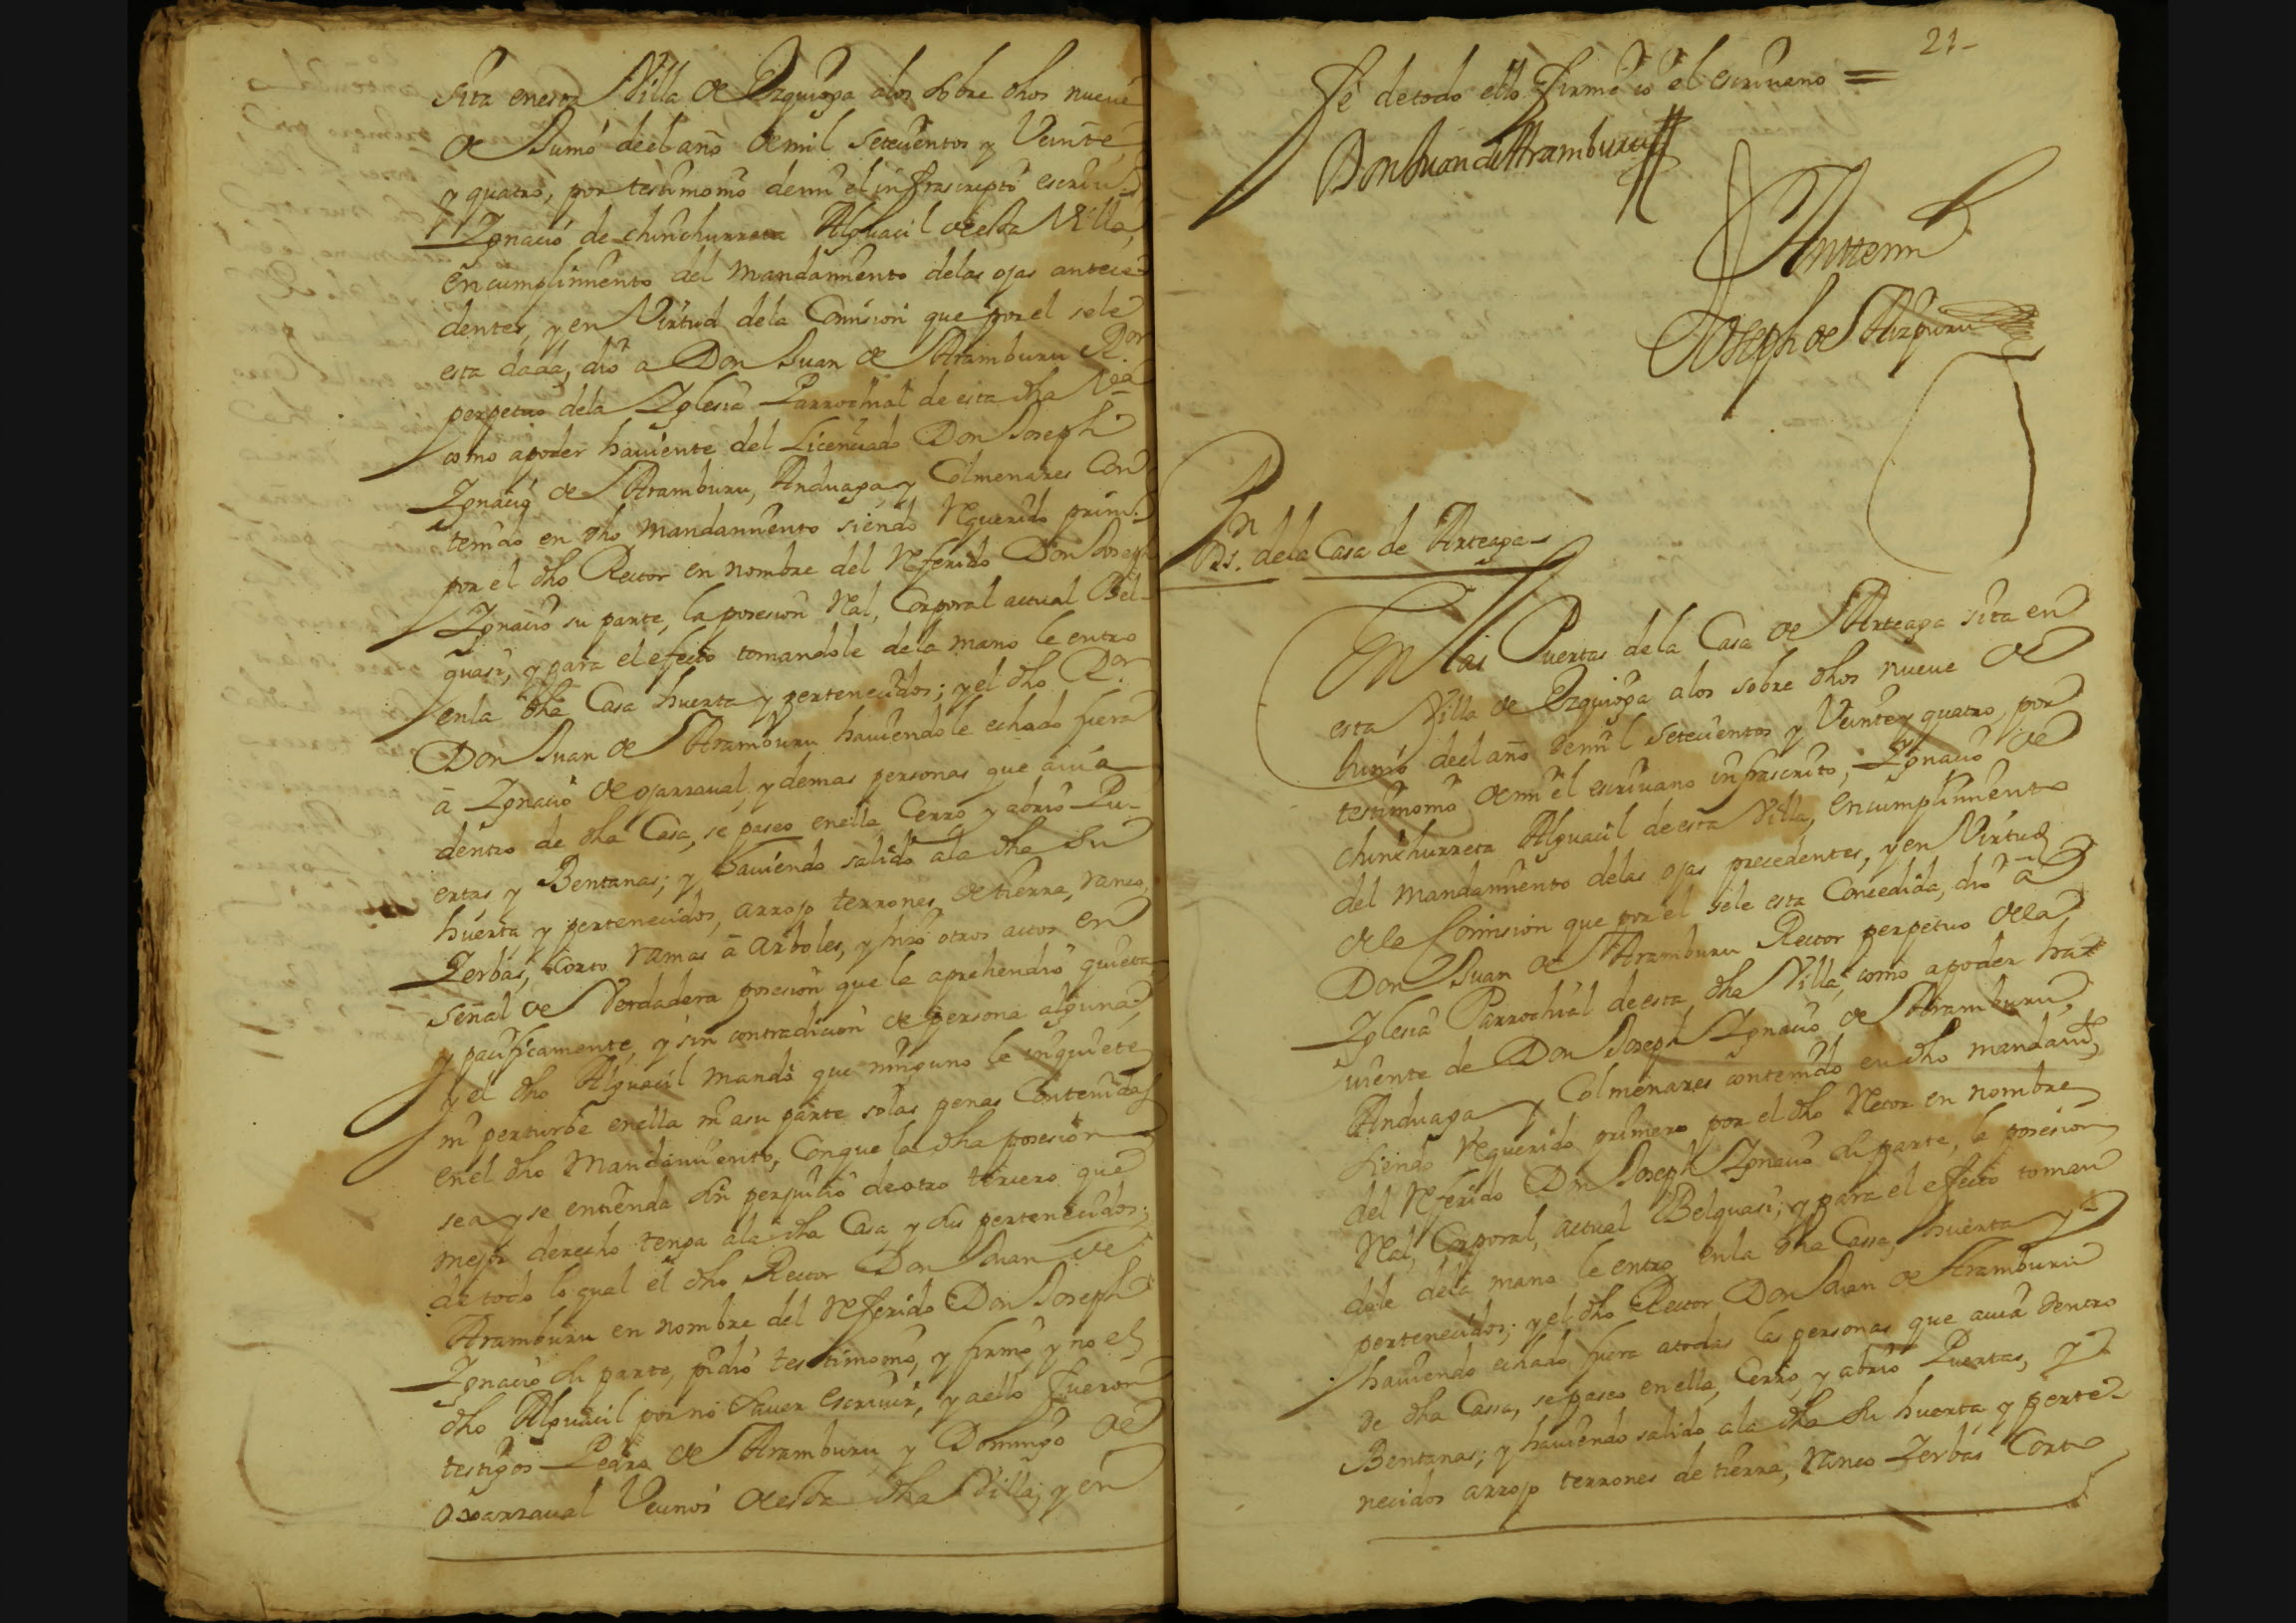 sita en esta Villa de Ezquioga a los sobre dhos nueue
de Junio de el año de mil setecientos y Veinte
y quatro, por testimonio de mi el infrascripto escriu.º
Ygnacio de chinchurreta Alguacil de esta Villa,
en cumplimiento del mandamiento de las ojas antece
dentes, y en Virtud de la Comision que por el se le
esta dada, dio a Don Juan de Aramburu R.or
perpetuo de la Yglesia Parrochial de esta dha V.a
como a poder hauiente del Licenciado Don Joseph
Ygnacio de Aramburu, Anduaga y Colmenares Con
tenido en dho mandamiento siendo requerido prim.o
por el dho Rector en nombre del referido Don Joseph
Ygnacio su parte, la posesion Real, Corporal actual Bel
quasi, y para el efecto tomandole de la mano le entro
en la dha Casa huerta y pertenecidos; y el dho R.or
Don Juan de Aramburu hauiendole echado fuera
a Ygnacio de ojarraual, y demas personas que auia
dentro de dha Casa, se paseo en ella Cerro y abrio Pu-
ertas y Bentanas; y hauiendo salido a la dha su
huerta y pertenecidos, arrojo terrones de tierra, ranco,
Yerbas, corto ramas a arboles, y hizo otros actos en
señal de Verdadera posesion que la aprehendio quieta
y pacificamente, y sin contradicion de persona alguna
y el dho Alguacil mando que ninguno le inquiete
ni perturbe en ella ni a su parte so las penas Contenidas
en el dho Mandamiento, Con que la dha posesion
sea y se entienda sin perjuicio de otro tercero que
mejor derecho tenga a la dha Casa y sus pertenecidos;
de todo lo qual el dho Rector Don Juan de
Aramburu en nombre del referido Don Joseph
Ygnacio su parte, pidio testimonio, y firmo y no el
dho Alguacil por no Sauer escriuir, y a ello fueron
testigos Pedro de Aramburu y Domingo de
oxarraual Vecinos de esta dha Villa; y en
21-
fe de todo ello firme io el escriuano =
Don Juan de Aramburu
Ante mi
Joseph de Aizpuru
Pn
Ps. de la Casa de Arteaga
En las Puertas de la Casa de Arteaga sita en
esta Villa de Ezquioga a los sobre dhos nueue de
Junio de el año de mil setecientos y Veinte y quatro, por
testimonio de mi el escriuano infrascrito, Ygnacio de
chinchurreta Alguacil de esta Villa, en cumplimiento
del mandamiento de las ojas precedentes, y en Virtud
de la Comision que por el se le esta Concedida, dio a
Don Juan de Aramburu Rector perpetuo de la
Yglesia Parrochial de esta dha Villa, como a poder ha
uiente de Don Joseph Ygnacio de Aramburu,
Anduaga y Colmenares contenido en dho mandami.to
siendo requerido primero por el dho Retor en nombre
del referido Don Joseph Ygnacio su parte, la posesion
Real, Corporal, actual Belquasi; y para el efecto toman
dole de la mano le entro en la dha Cassa, huerta y
pertenecidos; y el dho Rector Don Juan de Aramburu
hauiendo echado fuera a todas las personas que auia dentro
de dha Cassa, se paseo en ella, Cerro, y abrio Puertas, y
Bentanas; y hauiendo salido a la dha su huerta y perte
necidos arrojo terrones de tierra, ranco Yerbas Corto